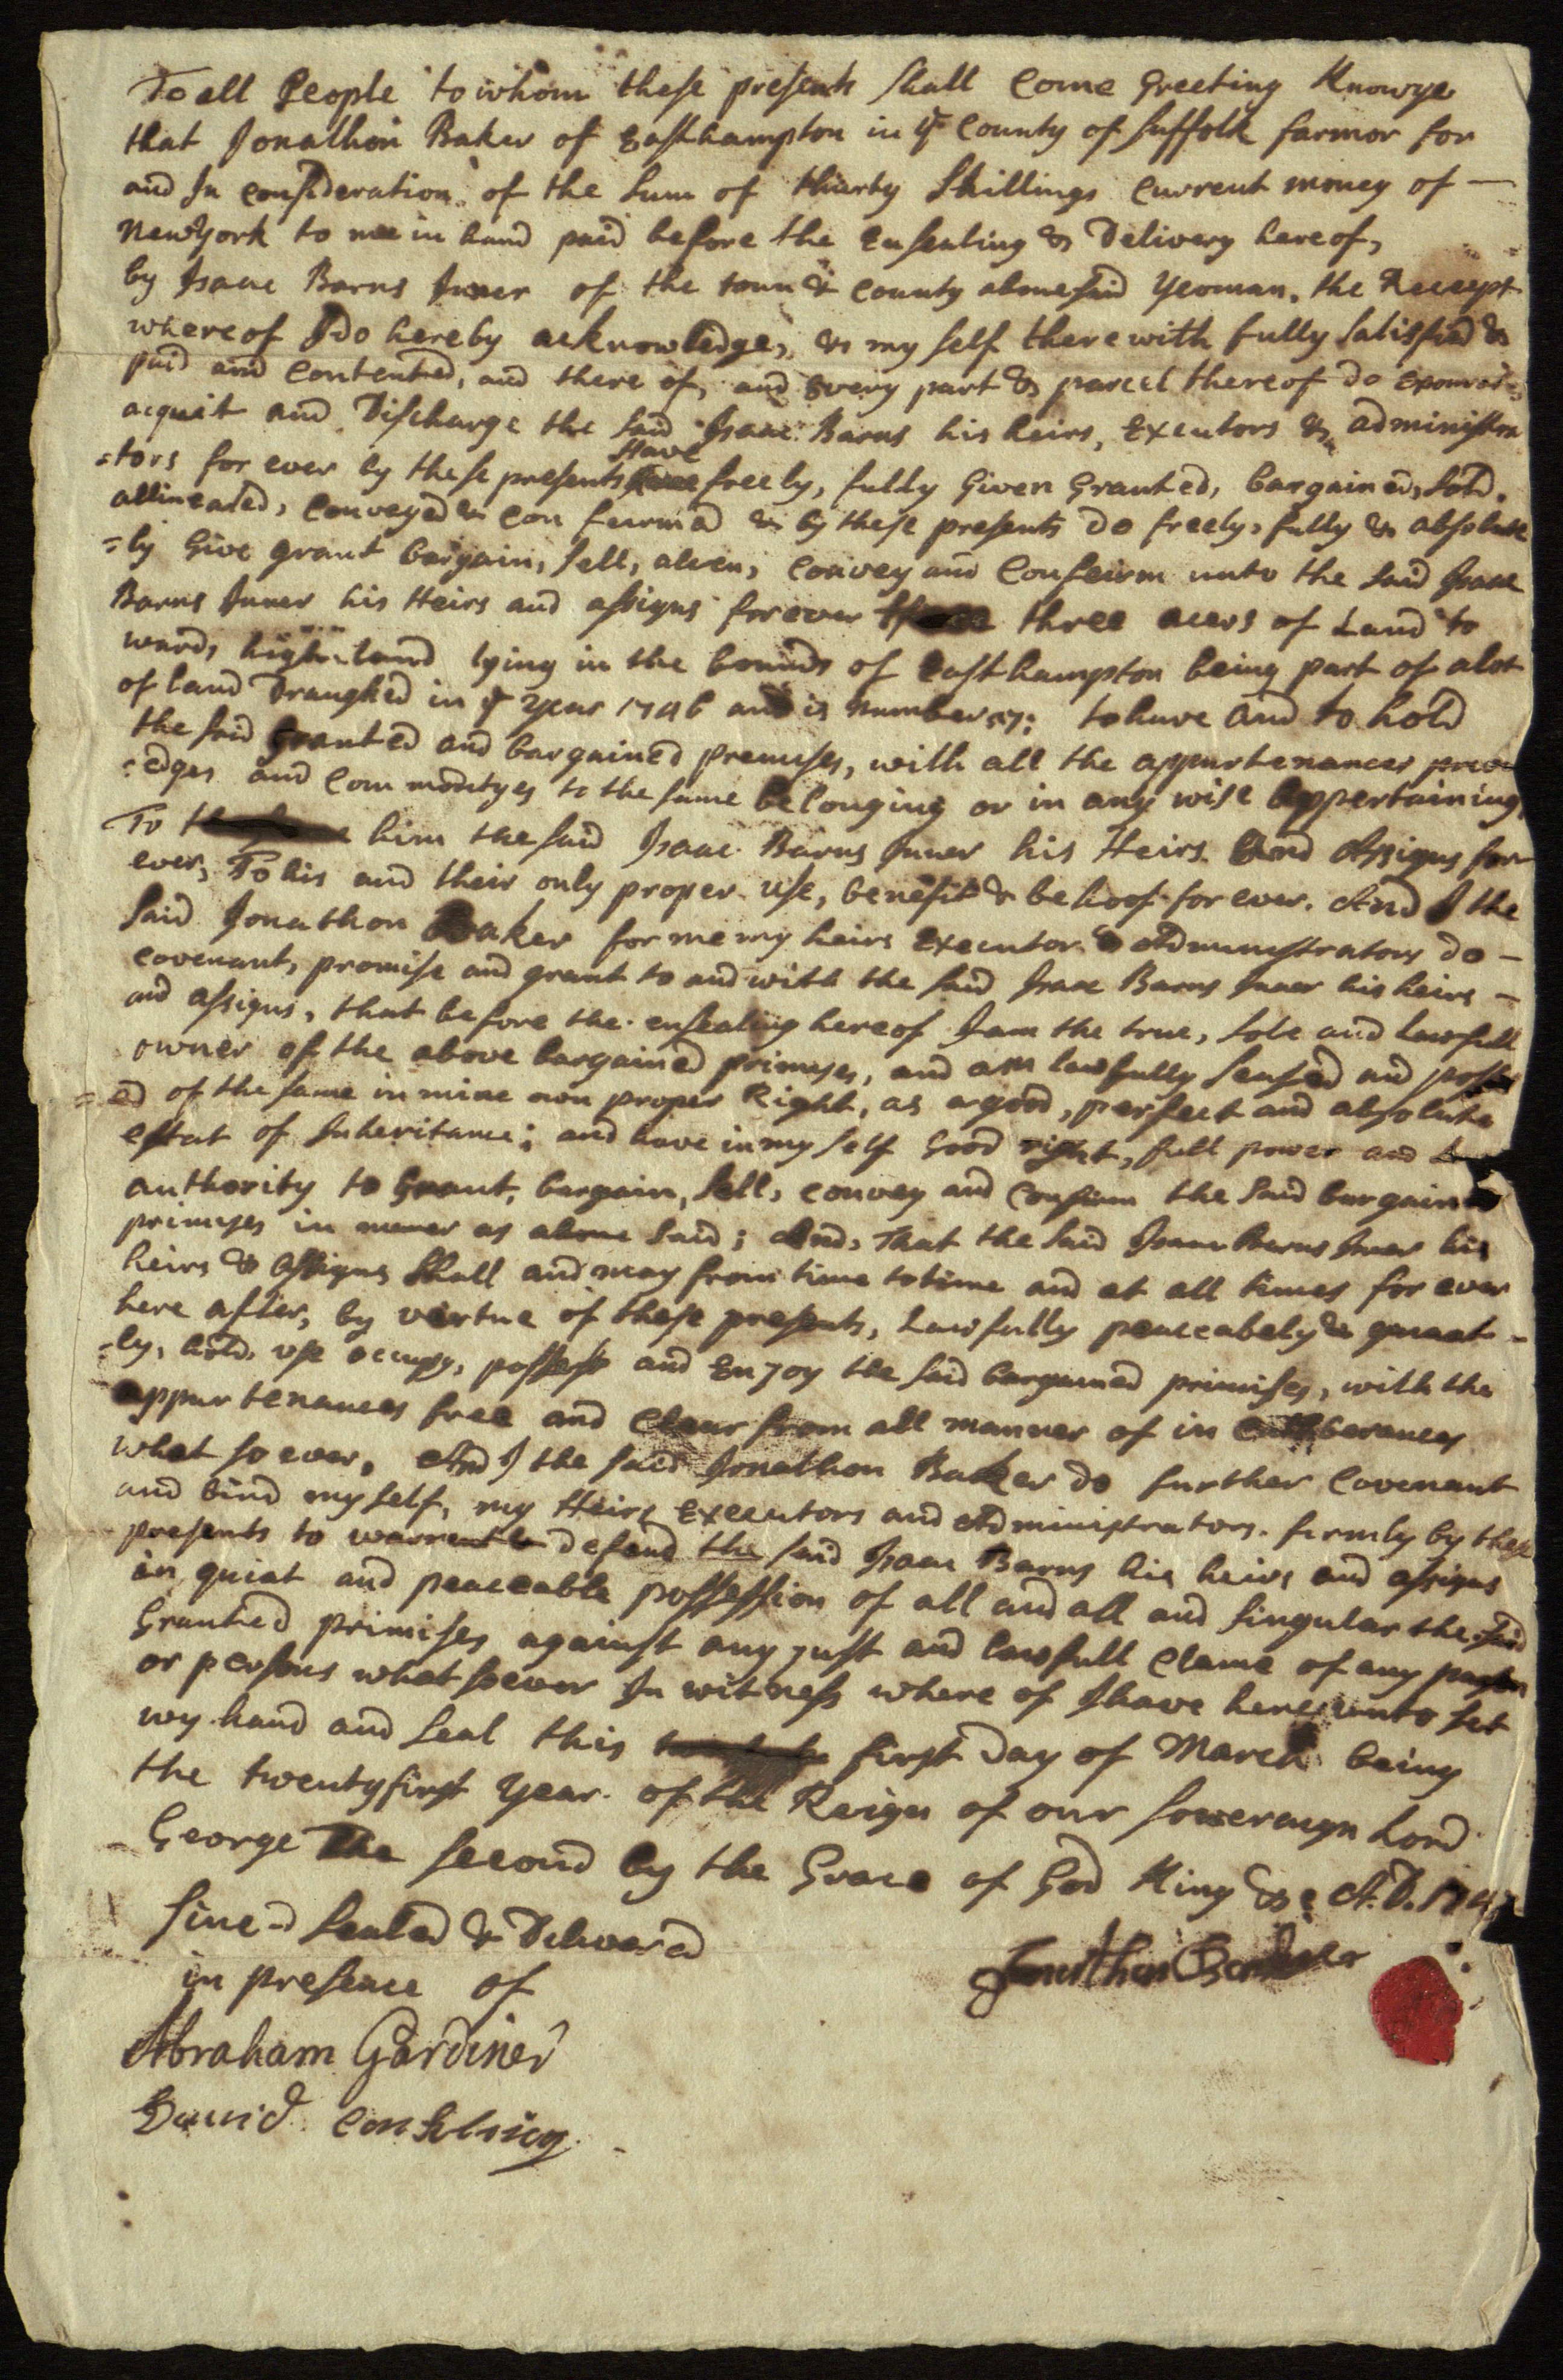 To all People to whom these presents shall Come Greeting Know ye
that Jonathon Baker of Easthampton in ye County of Suffolk farmor for
and In consideration of the Sum of thurty Shillings Current money of —
New York to mee in hand paid before the Ensealing & Delivery hereof,
by Isaac Barns Juner of the town & County abovesaid Yeoman, the Receept
whereof I Do hereby acknowledge, & my self there with fully Satisfied &
paid and Contented, and there of, and Every part & parcel thereof do
acquit and Discharge the said Isaac Barns his heirs, Executors & administra
=tors for ever by these presents Have freely, fully Given Granted, bargained, Sold,
allineated, Conveyed & con feirmd & by these presents Do freely, fully & absolute
=ly Give grant bargain, Sell, alien, Convey and Confeirm unto the said Isaac
Barns Juner his Heirs and assigns for ever three acers of Land to
wards high land lying in the bounds of Easthampton being part of a lot
of land Draughed in ye Year 1746 and is Number 17: to have and to hold
the said Granted and bargained premises, with all the appurtenances
=edges and Com modityes to the same belonging or in any wise appertaining
To him the said Isaac Barns Juner his Heirs And Assigns for
ever, To his and their only proper use, benefit & be hoof for ever. And I the
Said Jonathon Baker for me my heirs Executor & Administrators do —
covenant, promise and grant to and with the said Isaac Barns Juner his heirs —
and assigns, that before the ensealing hereof I am the true, sole and Lawfull
owner of the above bargained primeses, and am lawfully seased and
=ed of the same in mine own proper Right, as a good, perfect and absolute
estat of Inheritance; and have in my self Good right, full power and
authority to Grant, bargain, Sell, convey and confirm the said bargained
primeses in maner as above said; And, That the said Isaac Barns Juner his
heirs & assigns Shall and may from time to time and at all times for ever
here after, by vertue of these presents, Lawfully peaceabely &
-ly, hold, use occupy, possess and Enjoy the said bargained primises, with the
appurtenances free and Clear from all manner of in
what so ever, And I the said Jonathon Baker do further Covenant
and bind my self, my Heirs Executors and Administrators. firmly by these
presents to defend the said Isaac Barns his heirs and assigns
in quiat and peaceable possession of all and all and singular the said
Granted primises against any just and lawfull Clame of any
or persons what soever In witness where of I have here unto set
my hand and Seal this first Day of March being
the twentyfirst Year of the Reign of our Lord
George The Second by the Grace of God King &c A.D.
Sined Sealed &
in presence of
Jonathan Baker
Abraham Gardiner
David Conkling